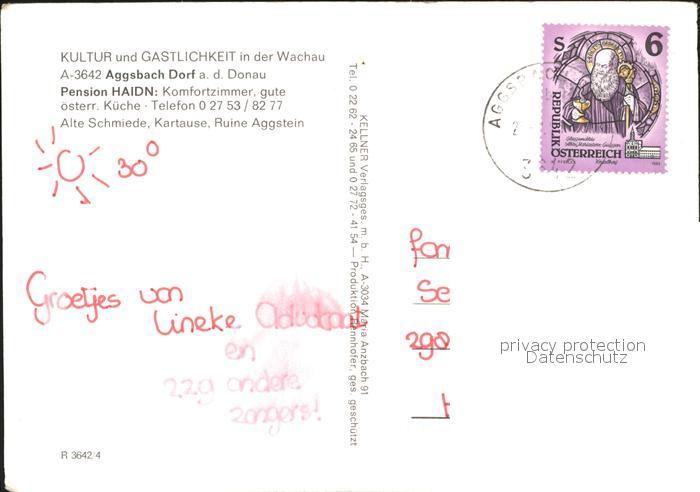 KULTUR und GASTLICHKEIT in der Wachau
A-3642 Aggsbach Dorf a. d. Donau
Pension HAIDN: Komfortzimmer, gute
österr. Küche · Telefon 0 27 53 / 82 77
Alte Schmiede, Kartause, Ruine Aggstein
30°
Groetjes van
Lineke
en
22g andere
zangers!
R 3642/4
KELLNER Verlagsges. m. b. H., A-3034 Maria Anzbach 91
Tel. 0 22 62 - 24 65 und 0 27 72 - 41 54 — Produktion Rennhofer, ges. geschützt
AGGSBACH
S 6
REPUBLIK
ÖSTERREICH
fam
Se
zga
privacy protection
Datenschutz